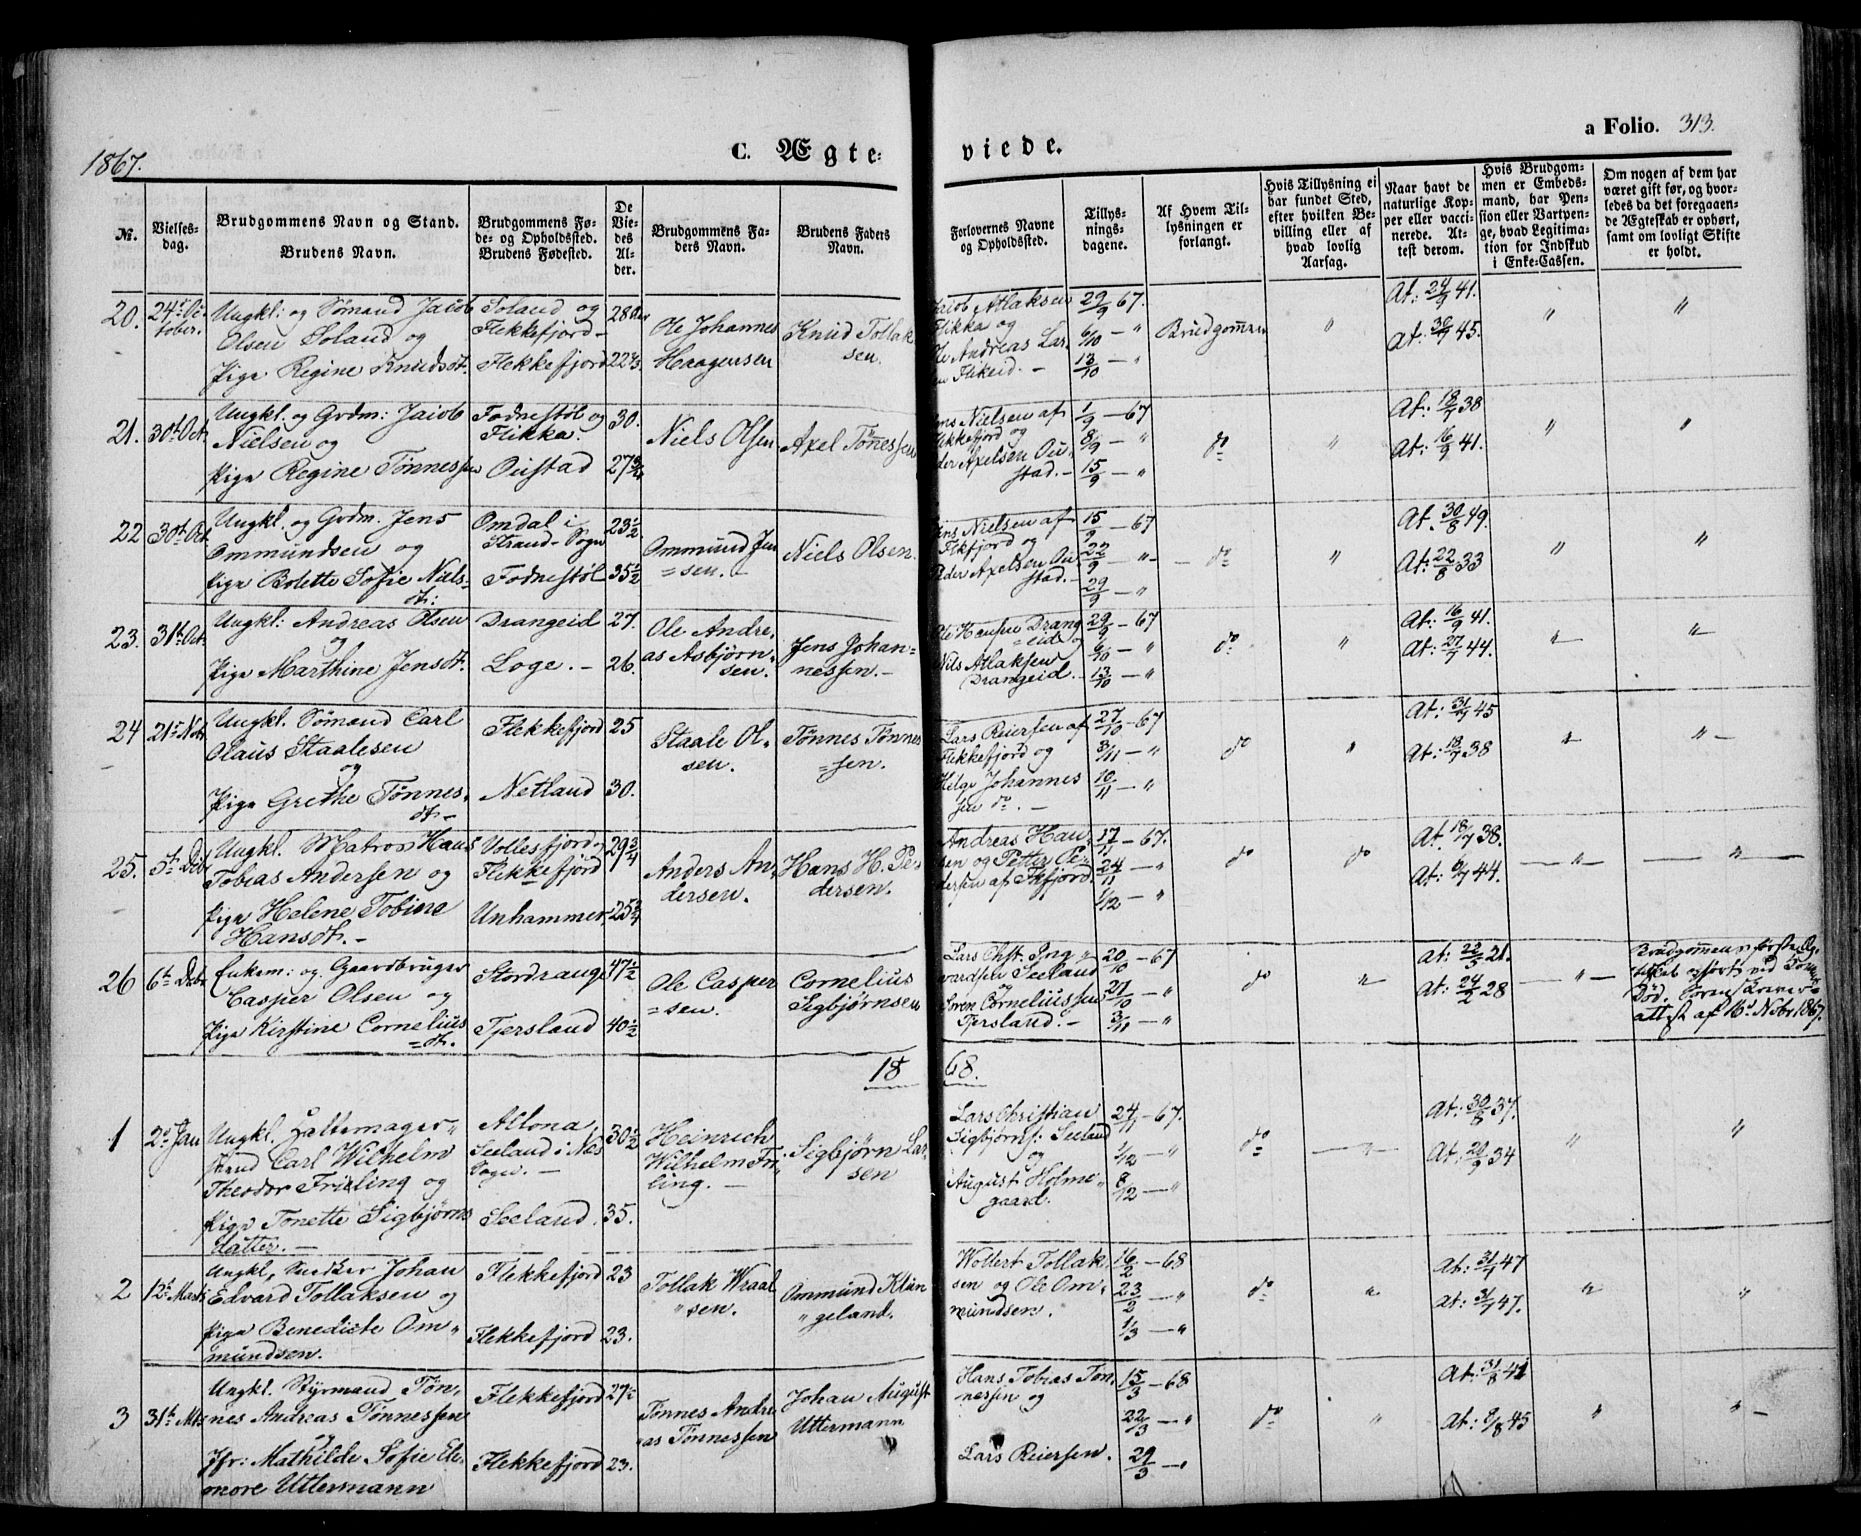 1867.
C. Ægte-
viede.
a Folio. 313.
№.
Vielses-
dag.
Brudgommens Navn og Stand.
Brudens Navn.
Brudgommens Fø-
de- og Opholdssted.
Brudens Fødested.
De
Vie-
des
Al-
der.
Brudgommens Fa-
ders Navn.
Brudens Faders
Navn.
Forlovernes Navne
og Opholdssted.
Tillys-
nings-
dagene.
Af Hvem Til-
lysningen er
forlangt.
Hvis Tillysning ei
har fundet Sted,
efter hvilken Be-
villing eller af
hvad lovlig
Aarsag.
Naar havt de
naturlige Kop-
per eller vacci-
nerede. At-
test derom.
Hvis Brudgom-
men er Embeds-
mand, har Pen-
sion eller Vartpen-
ge, hvad Legitima-
tion for Indskud
i Enke-Cassen.
Om nogen af dem har
været gift før, og hvor-
ledes da det foregaaen-
de Ægteskab er ophørt,
samt om lovligt Skifte
er holdt.
20.
24de Oc-
tober.
Ungkl: og Sømand Jacob
Olsen Soland og
Pige Regine Knudsdt.
Soland og
Flekkefjord
Flekkefjord
28
22
Ole Johannes
Haagensen
Knud Tollak-
sen.
Jacob Atlaksen
Flikka og
Ole Andreas Lar-
sen Flikeid. –
29/9 67.
6/10 – "
13/10 – "
Brudgommen
"
At: 24/9 41.
At: 30/7 45.
"
"
21.
30te Oct
Ungkl. og Grdm: Jacob
Nielsen og
Pige Regine Tønnessen
Fodnestøl og
Flikka.
Oustad
30.
27
Niels Olsen
Axel Tønnessen
Jens Nielsen af
Flekkefjord og
Peder Axelsen Ou-
stad. –
1/9 – 67
8/9 – "
15/9 – "
do
"
At: 18/7 38
At: 16/9 41.
"
"
22
30te Oct
Ungkl. og Grdm. Jens
Ommundsen og
Pige Bolette Sofie Niels-
dt:
Omdal i
Strand-Sogn
Fodnestøl
23½
35½
Ommund Jen
=sen. –
Niels Olsen.
Jens Nielsen af
Flkfjord og
Peder Axelsen Ou-
stad. –
15/9 – 67
22/9 – "
29/9 – "
– do
"
At. 30/8 49.
At: 22/8 33
"
"
23.
31te Oct.
Ungkl: Andreas Olsen
og
Pige Marthine Jensdt.
Drangeid
Loge. –
27.
26.
Ole Andre-
as Asbjørn-
sen.
Jens Johan-
nessen. –
Ole Hansen Drang
=eid og
Nils Atlaksen
Drangeid. –
29/9 – 67
6/10 – "
13/10 – "
do
"
At: 16/9 41.
At: 27/7 44.
"
"
24
21de Nobr
Ungkl. Sømand Carl
Olaus Staalesen
og
Pige Grethe Tønnes-
dt. –
Flekkefjord
Netland
25
30.
Staale Ol-
sen.
Tønnes Tønnes
=sen.
Lars Reiersen af
Flekkefjord og
Helge Johannes
sen do. –
27/10 – 67
3/11 – "
10/11 – "
do
"
At: 31/7 45
At: 18/7 38
"
"
25.
5te Debr
Ungkl. Matros Hans
Tobias Andersen og
Pige Helene Tobine
Hansdt. –
Vollesfjord
Flekkefjord
Unhammer
29¾
25¾
Anders An-
dersen.
Hans H. Pe-
dersen.
Andreas Han-
sen og Petter Pe-
dersen af Flkfjord
17/11 – 67.
24/11 – "
1/12 – "
do
do
At. 18/7 38.
At: 44.
"
"
26
6te Debr
Enkem: og Gaardbruger
Casper Olsen og
Pige Kirstine Cornelius
=dt.
Stordrange
Tjersland
47½
40½
Ole Casper
=sen.
Cornelius
Sigbjørnsen
Lars Chst. Ing-
vardsen Seeland
og
Søren Corneliussen
Tjersland. –
20/10 – 67
27/10 – "
3/11 – "
do
"
At: 22/5 21.
At: 24/2 28
"
Brudgommens første Æg-
teskab ophørt ved Konens
Død.
attest af 16de Nobr. 1867.
1868.
1
2de Jan
Ungkl.
Carl Wilhelm
Theodor Frieling og
Pige Tonette Sigbjørns
datter. –
Altona,
Seeland i Næs
Sogn. –
Seeland.
30½
35.
Heinrich
Wilhelm Fri-
ling. –
Sigbjørn Lar-
sen
Lars Christian
Sigbjørns: Seeland
og
August Holme-
gaard.
24/11 – 67.
1/12 – "
8/12 – "
do
"
At: 30/8 37.
At: 20/9 34
"
"
2
12te Marts
Ungkl, Snedker Johan
Edvard Tollaksen og
Pige Benedicte Om-
mundsen.
Flekkefjord
Flekkefjord
23
23.
Tollak Wraal
"sen.
Ommund Klun
"geland.
Wollert Tollak-
sen og Ole Om-
mundsen.
16/2 – 68
23/2 – "
1/3 – "
do
"
At: 31/7 47
At: 31/7 47.
"
"
3
31te Mts
Ungkl. Styrmand Tøn-
nes Andreas Tønnessen
og
Jfr: Mathilde Sofie Ele-
nore Uttermann
Flekkefjord
Flekkefjord
27½
23.
Tønnes Andre
"as Tønnessen
Johan August
Uttermann
Hans Tobias Tøn-
nessen og
Lars Reiersen.
15/3 – 68
22/3 – "
29/3 – "
do
"
At: 31/8 41
At: 9/8 45
"
"